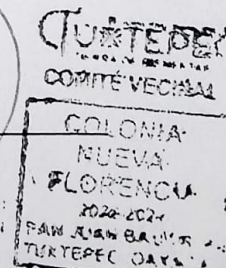 TUXTEPEC
COMITÉ VECINAL
COLONIA
NUEVA
FLORENCIA
SAN JUAN BAUTISTA
TUXTEPEC OAXACA